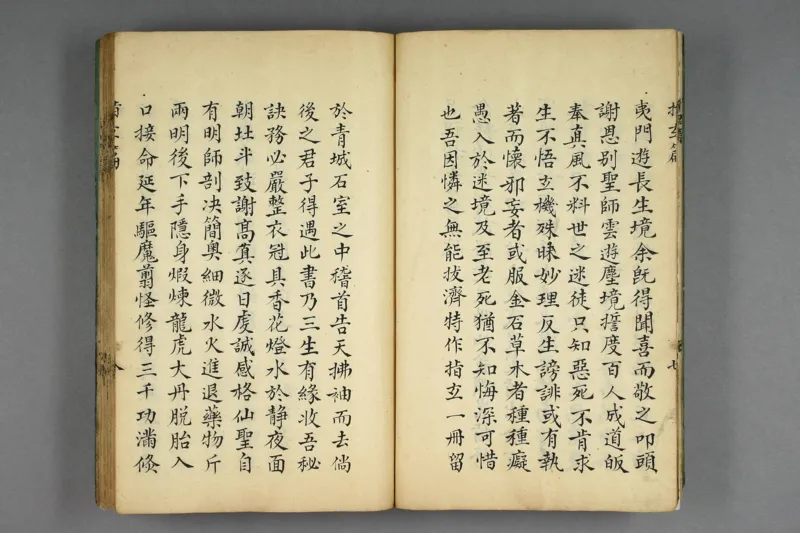 指玄篇
夷門遊長生境余旣得聞喜而敬之叩頭
謝恩别聖師雲遊塵境誓度百人成道皈
奉真風不料世之迷徒只知惡死不肯求
生不悟玄機殊昧妙理反生謗誹或有執
著而懷邪妄者或服金石草木者種種癡
愚入於迷境及至老死猶不知悔深可惜
也吾因憐之無能拔濟特作指玄一冊留
七
於青城石室之中稽首告天拂袖而去倘
後之君子得遇此書乃三生有緣收吾秘
訣務必嚴整衣冠具香花燈水於靜夜面
朝北斗致謝髙真逐日虔誠感格仙聖自
有明師剖决簡奥細微水火進退藥物斤
兩明後下手隱身煅煉龍虎大丹脱胎入
口接命延年驅魔剪怪修得三千功滿倐
指玄篇
八